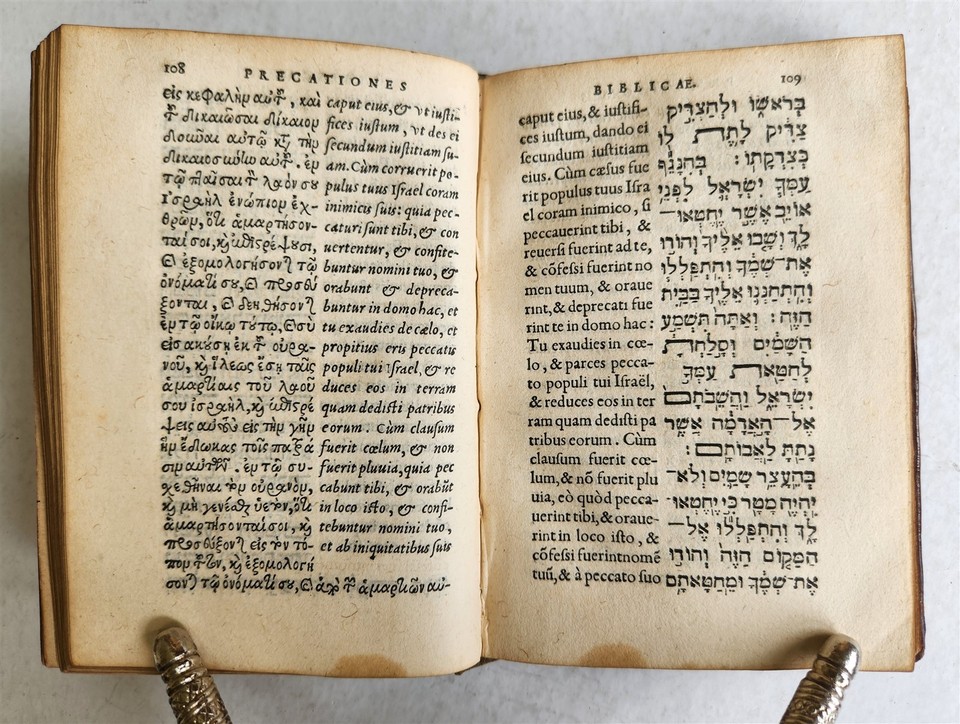 108 PRECATIONES
εἰς κεφαλὴν αὐτοῦ, καὶ
τοῦ δικαιῶσαι δίκαιον
δοῦναι αὐτῷ κατὰ τὴν
δικαιοσύνην αὐτοῦ. ἐν
τῷ πταῖσαι τὸν λαόν σου
Ἰσραὴλ ἐνώπιον ἐχ-
θρῶν, ὅτι ἁμαρτήσον-
ταί σοι, καὶ ἐπιστρέψουσι,
καὶ ἐξομολογήσονται τῷ
ὀνόματί σου, καὶ προσεύ
ξονται, καὶ δεηθήσονται
ἐν τῷ οἴκῳ τούτῳ, καὶ σὺ
εἰσακούσῃ ἐκ τοῦ οὐρα-
νοῦ, καὶ ἵλεως ἔσῃ ταῖς
ἁμαρτίαις τοῦ λαοῦ
σου ἰσραὴλ, καὶ ἀποστρέ
ψεις αὐτοὺς εἰς τὴν γῆν
ἣν ἔδωκας τοῖς πατρά
σιν αὐτῶν. ἐν τῷ συ-
σχεθῆναι τὸν οὐρανόν,
καὶ μὴ γενέσθαι ὑετὸν, ὅτι
ἁμαρτήσονταί σοι, καὶ
προσεύξονται εἰς τὸν τό-
πον τοῦτον, καὶ ἐξομολογή
σονται τῷ ὀνόματί σου, καὶ ἀπὸ τῶν ἁμαρτιῶν αὐ-
caput eius, & vt iusti-
fices iustum, vt des ei
secundum iustitiam su-
am. Cùm corruerit po-
pulus tuus Israel coram
inimicis suis: quia pec-
caturi sunt tibi, & con
uertentur, & confite-
buntur nomini tuo, &
orabunt & depreca-
buntur in domo hac, et
tu exaudies de cælo, et
propitius eris peccatis
populi tui Israel, & re
duces eos in terram
quam dedisti patribus
eorum. Cùm clausum
fuerit cælum, & non
fuerit pluuia, quia pec
cabunt tibi, & orabūt
in loco isto, & confi-
tebuntur nomini tuo,
et ab iniquitatibus suis
BIBLICAE. 109
caput eius, & iustifi-
ces iustum, dando ei
secundum iustitiam
eius. Cùm cæsus fue
rit populus tuus Isra
el coram inimico, si
peccauerint tibi, &
reuersi fuerint ad te,
& cōfessi fuerint no
men tuum, & oraue
rint, & deprecati fue
rint te in domo hac:
Tu exaudies in cœ-
lo, & parces pecca-
to populi tui Israël,
& reduces eos in ter
ram quam dedisti pa
tribus eorum. Cùm
clausum fuerit cœ-
lum, & nō fuerit plu
uia, eò quòd pecca-
uerint tibi, & oraue-
rint in loco isto, &
cōfessi fuerint nomē
tuū, & à peccato suo
בְּרֹאשׁוֹ וּלְהַצְדִּיק
צַדִּיק לָתֶת לוֹ
כְּצִדְקָתוֹ׃ בְּהִנָּגֵף
עַמְּךָ יִשְׂרָאֵל לִפְנֵי
אוֹיֵב אֲשֶׁר יֶחֶטְאוּ־
לָךְ וְשָׁבוּ אֵלֶיךָ וְהוֹדוּ
אֶת־שְׁמֶךָ וְהִתְפַּלְלוּ
וְהִתְחַנְּנוּ אֵלֶיךָ בַּבַּיִת
הַזֶּה׃ וְאַתָּה תִּשְׁמַע
הַשָּׁמַיִם וְסָלַחְתָּ
לְחַטַּאת עַמְּךָ
יִשְׂרָאֵל וַהֲשֵׁבֹתָם
אֶל־הָאֲדָמָה אֲשֶׁר
נָתַתָּ לַאֲבוֹתָם׃
בְּהֵעָצֵר שָׁמַיִם וְלֹא־
יִהְיֶה מָטָר כִּי יֶחֶטְאוּ־
לָךְ וְהִתְפַּלְלוּ אֶל־
הַמָּקוֹם הַזֶּה וְהוֹדוּ
אֶת־שְׁמֶךָ וּמֵחַטָּאתָם